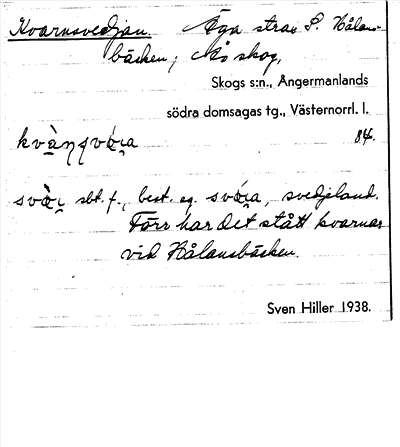 Kvarnsvedjan. Äga strax S. Hålans-
bäcken, Nås skog,
Skogs s:n., Ångermanlands
södra domsagas tg., Västernorrl. l.
84.
sbt. f., best. sg. svedjeland.
Förr har det stått kvarnar
vid Hålansbäcken.
Sven Hiller 1938.